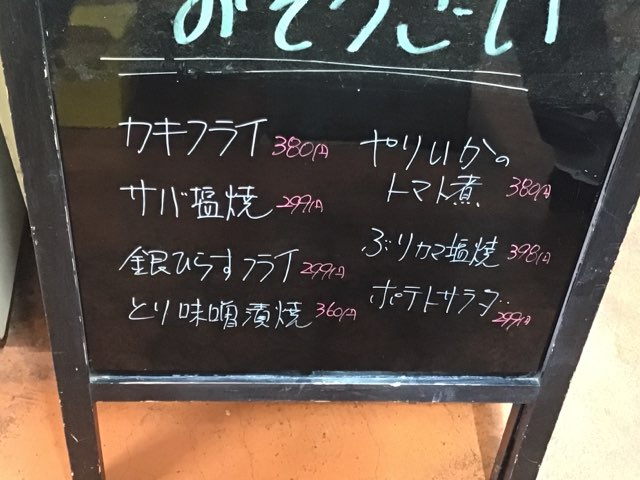 おそうざい
カキフライ 380円
サバ塩焼 299円
銀ひらすフライ 299円
とり味噌漬焼 360円
やりいかの
トマト煮 380円
ぶりカマ塩焼 398円
ポテトサラダ 299円